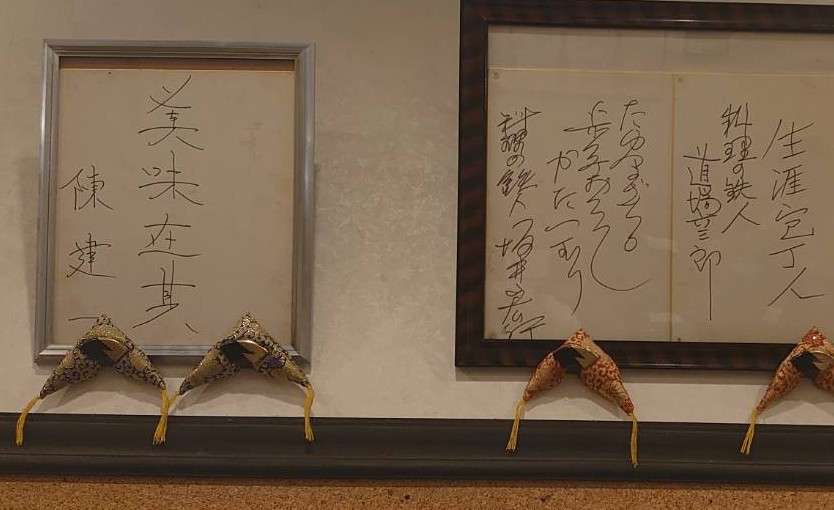 生涯包丁人
料理の鉄人
道場六三郎
たゆまざる
歩みおそろし
かたつむり
料理の鉄人 坂井宏行
美味在其
陳建一